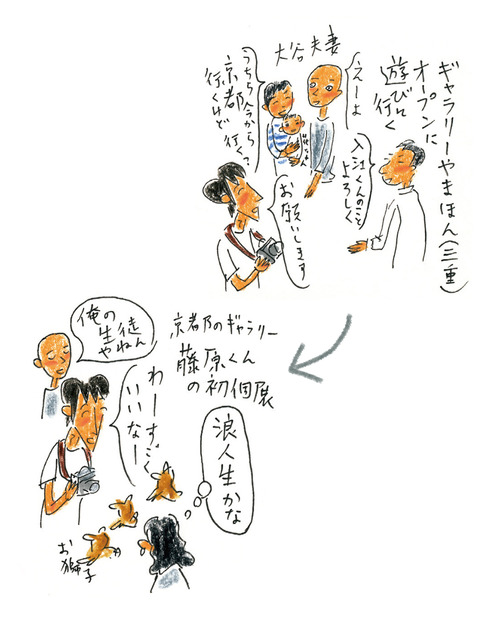 ギャラリーやまほん(三重)
オープンに
遊びに
行く
大谷夫妻
えーよ
うちら今から
京都
行くけど
行く?
入江くんのこと
よろしく
お願いします
京都のギャラリー
藤原くん
の初個展
俺の
生徒
やねん
わーすごく
いいなー
浪人生かな
お獅子